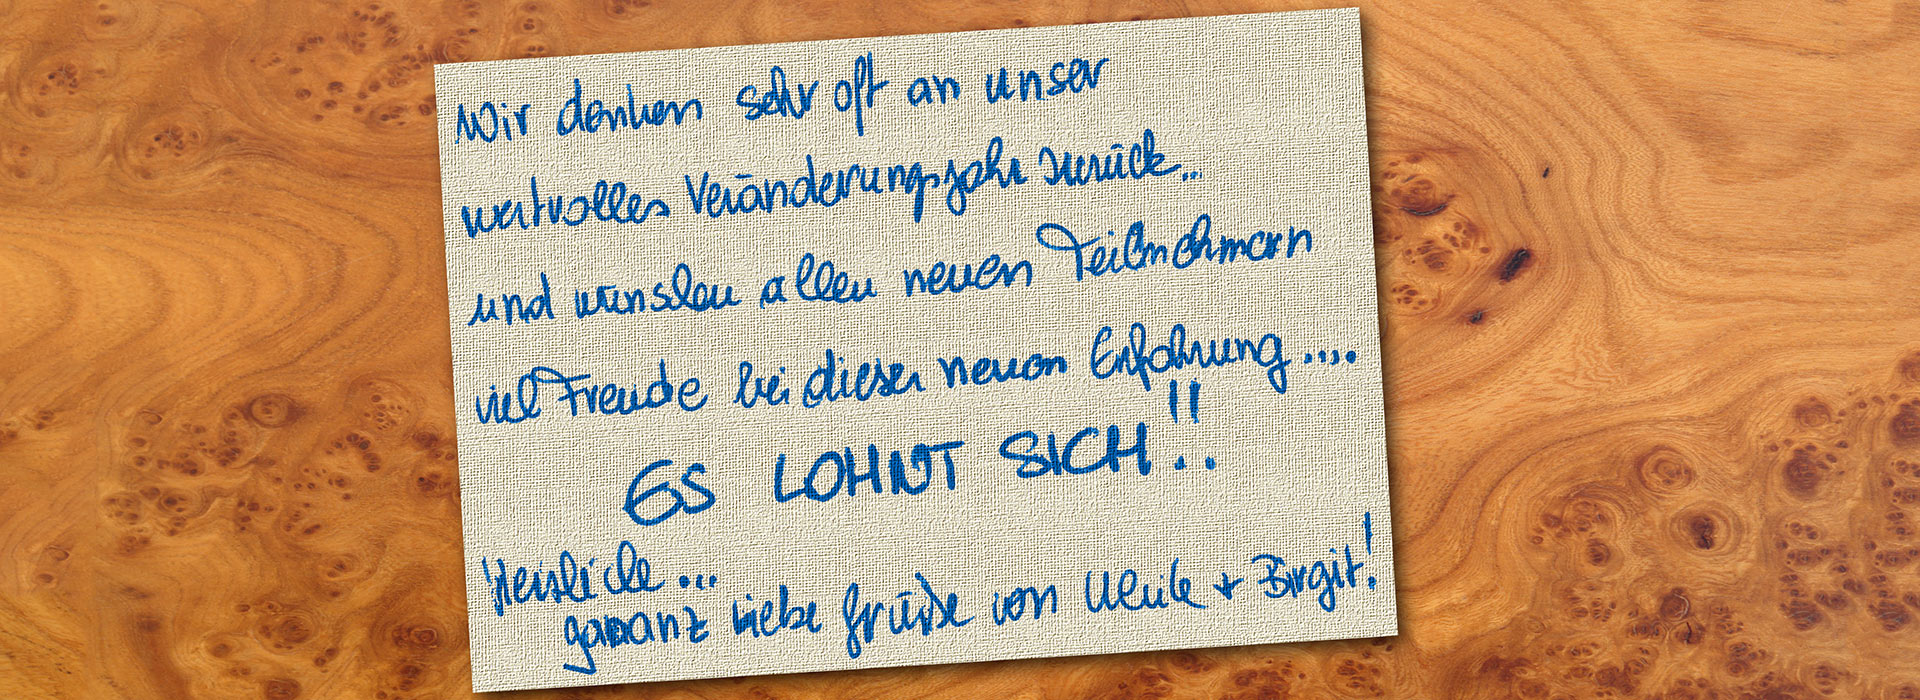 Wir denken sehr oft an unser
wertvolles Veränderungsjahr zurück..
und wünschen allen neuen Teilnehmern
viel Freude bei dieser neuen Erfahrung....
ES LOHNT SICH!!
Herzliche...
gaaanz liebe Grüße von Ulrike + Birgit!